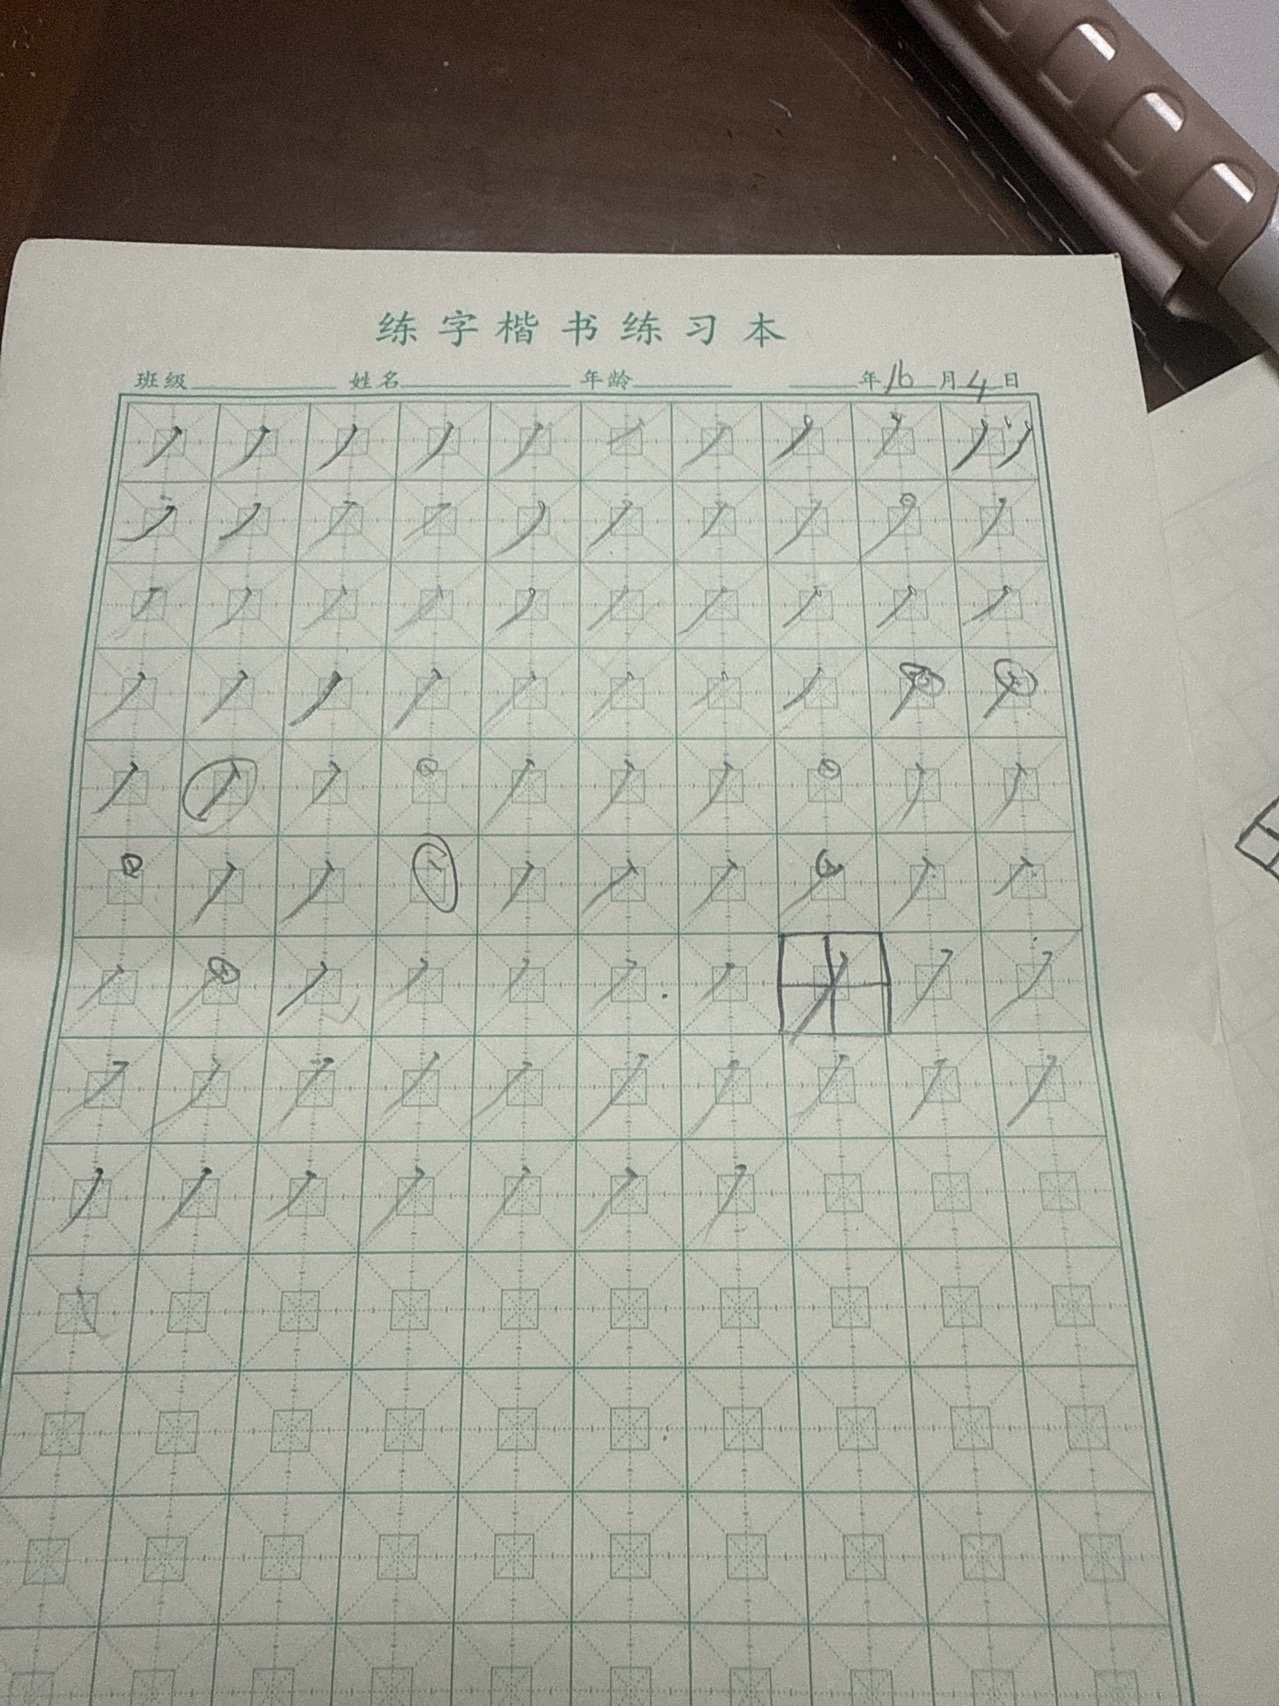 练字楷书练习本
班级 姓名 年龄 年10月4日